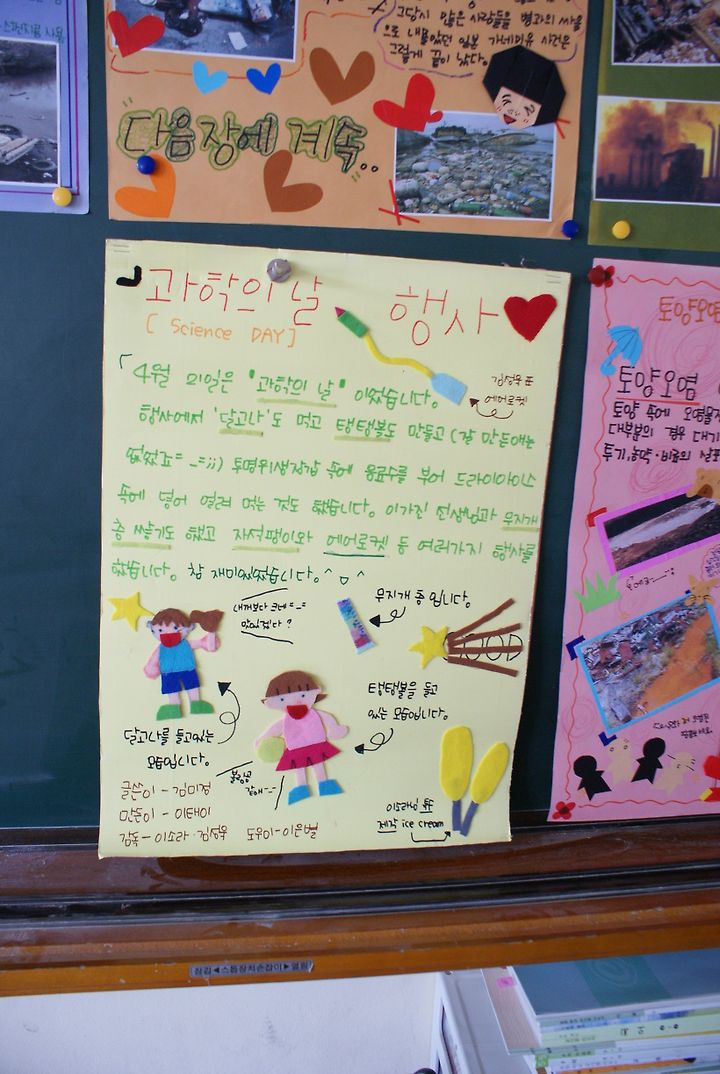 그당시 많은 사람들을 병과의 싸움
으로 내몰았던 일본 가네미유 사건은
그렇게 끝이 났다.
"다음장에 계속.."
과학의 날 행사
[ Science DAY ]
김성욱 표
에어로켓
「4월 21일은 "과학의 날" 이었습니다.
행사에서 '달고나'도 먹고 탱탱볼도 만들고 (잘 만든애는
없었죠=_=;;) 투명위생장갑 속에 음료수를 부어 드라이아이스
속에 넣어 얼려 먹는 것도 했습니다. 이가진 선생님과 무지개
층 쌓기도 했고 자석팽이와 에어로켓 등 여러가지 행사를
했습니다. 참 재미있었습니다.^ㅁ^
내꺼보다 크네=_=
맛있겠다?
무지개 층 입니다.
탱탱볼을 들고
있는 모습입니다.
달고나를 들고있는
모습입니다.
글쓴이 - 김미정
만든이 - 이태이
감독 - 이소라·김성욱 도우미-이은별
이소라님 표
제작 ice cream
토양오염
토양오염
토양 속에 오염물
대부분의 경우 대기
투기,농약·비료의 살포
잠김◀스톱장치손잡이▶열림